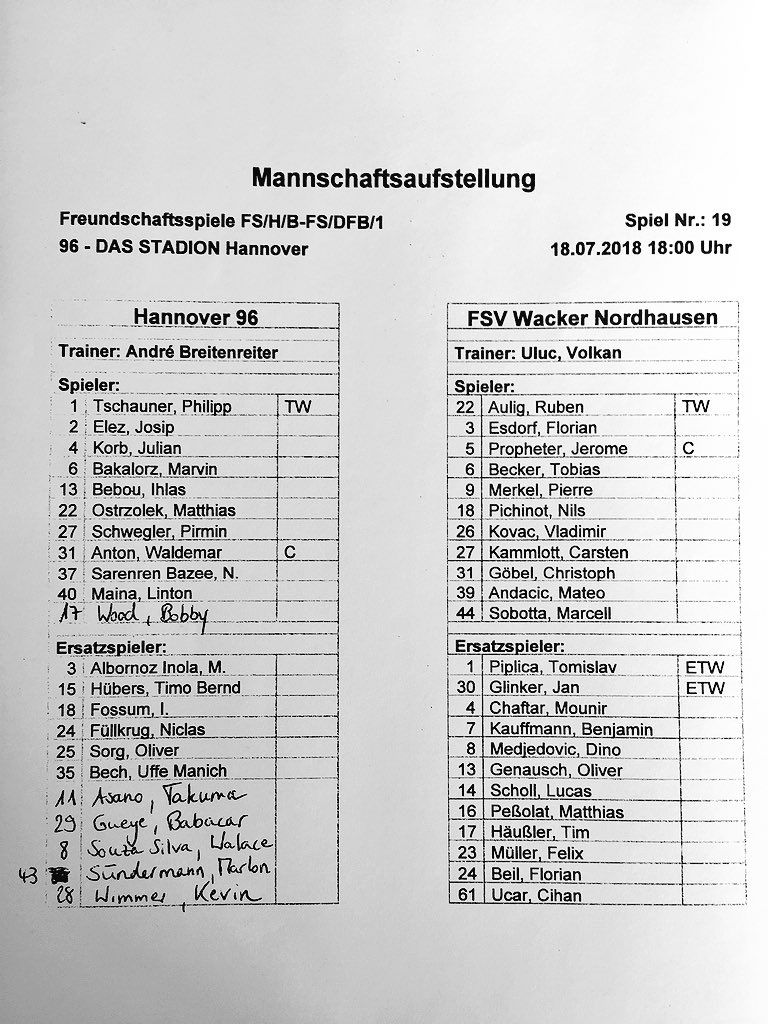 Mannschaftsaufstellung
Freundschaftsspiele FS/H/B-FS/DFB/1
Spiel Nr.: 19
96 - DAS STADION Hannover
18.07.2018 18:00 Uhr
Hannover 96
Trainer: André Breitenreiter
Spieler:
1 Tschauner, Philipp TW
2 Elez, Josip
4 Korb, Julian
6 Bakalorz, Marvin
13 Bebou, Ihlas
22 Ostrzolek, Matthias
27 Schwegler, Pirmin
31 Anton, Waldemar C
37 Sarenren Bazee, N.
40 Maina, Linton
17 Wood, Bobby
Ersatzspieler:
3 Albornoz Inola, M.
15 Hübers, Timo Bernd
18 Fossum, I.
24 Füllkrug, Niclas
25 Sorg, Oliver
35 Bech, Uffe Manich
11 Asano, Takuma
29 Gueye, Babacar
8 Souza Silva, Walace
43 Sündermann, Marlon
28 Wimmer, Kevin
FSV Wacker Nordhausen
Trainer: Uluc, Volkan
Spieler:
22 Aulig, Ruben TW
3 Esdorf, Florian
5 Propheter, Jerome C
6 Becker, Tobias
9 Merkel, Pierre
18 Pichinot, Nils
26 Kovac, Vladimir
27 Kammlott, Carsten
31 Göbel, Christoph
39 Andacic, Mateo
44 Sobotta, Marcell
Ersatzspieler:
1 Piplica, Tomislav ETW
30 Glinker, Jan ETW
4 Chaftar, Mounir
7 Kauffmann, Benjamin
8 Medjedovic, Dino
13 Genausch, Oliver
14 Scholl, Lucas
16 Peßolat, Matthias
17 Häußler, Tim
23 Müller, Felix
24 Beil, Florian
61 Ucar, Cihan